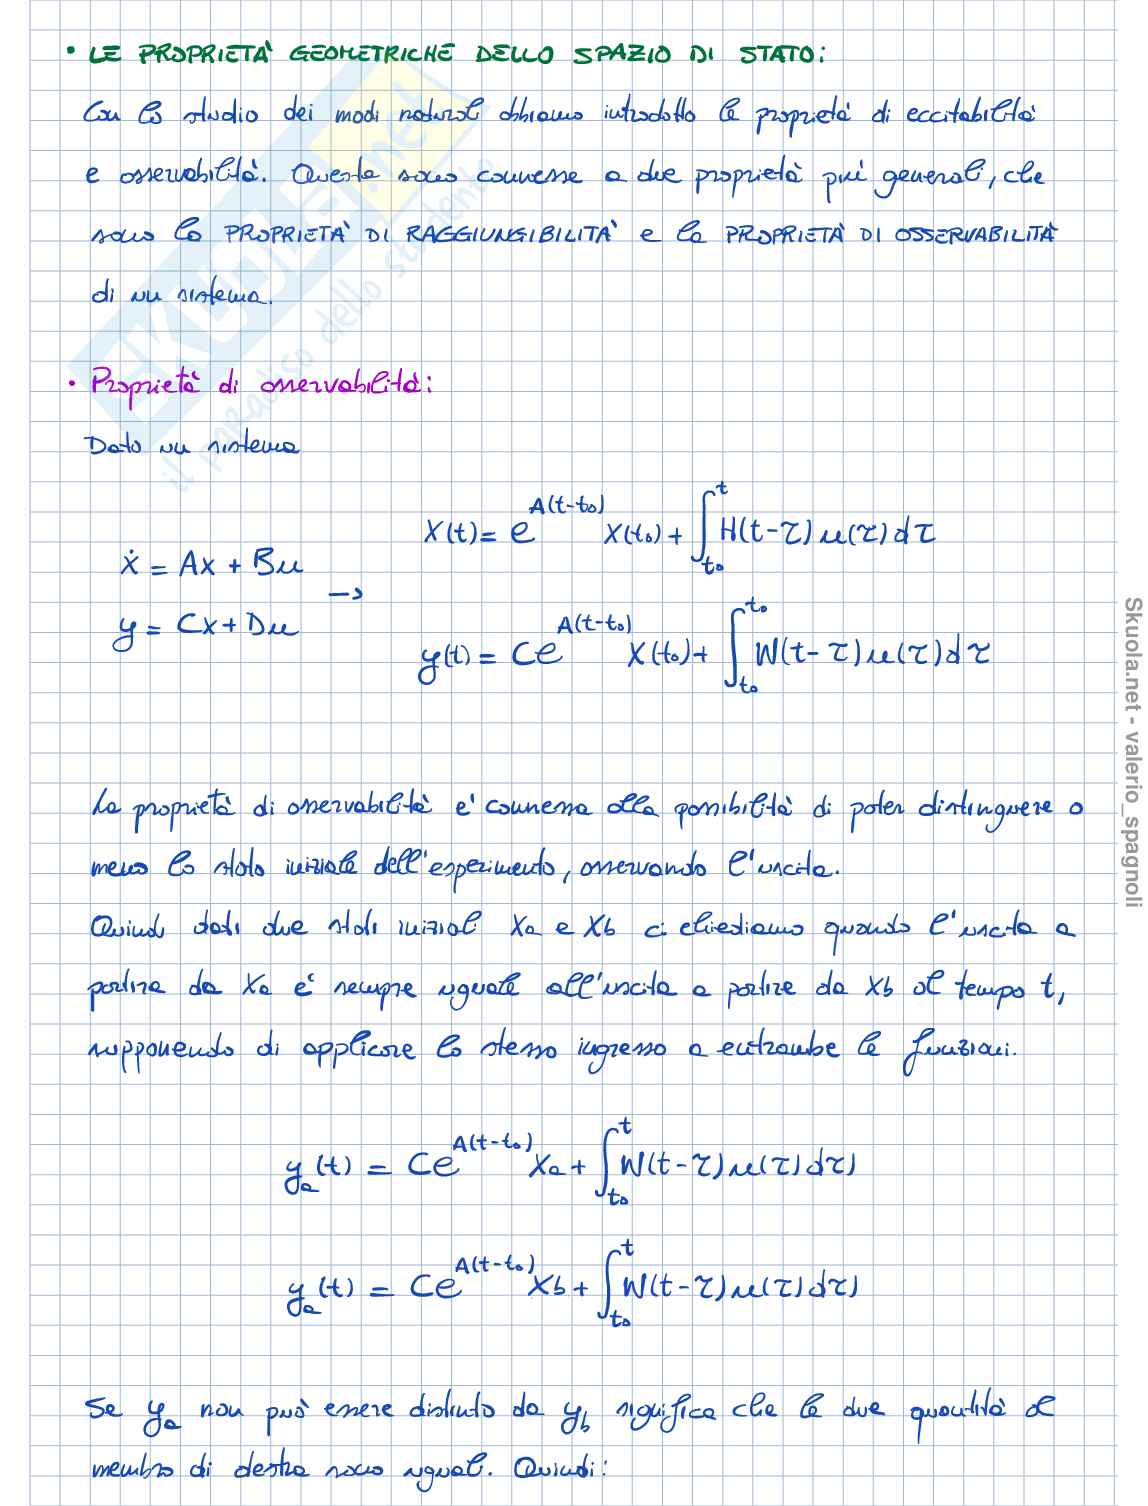 • LE PROPRIETA' GEOMETRICHE DELLO SPAZIO DI STATO:
Con lo studio dei modi naturali abbiamo introdotto le proprietà di eccitabilità
e osservabilità. Queste sono connesse a due proprietà più generali, che
sono la PROPRIETA' DI RAGGIUNGIBILITA' e la PROPRIETÀ DI OSSERVABILITÀ
di un sistema.
• Proprietà di osservabilità:
Dato un sistema
X(t) = e^{A(t-t₀)} X(t₀) + ∫_{t₀}^{t} H(t-τ) u(τ) dτ
ẋ = Ax + Bu
→
y = Cx + Du
y(t) = Ce^{A(t-t₀)} X(t₀) + ∫_{t₀}^{t₀} W(t-τ) u(τ) dτ
La proprietà di osservabilità e' connessa alla possibilità di poter distinguere o
meno lo stato iniziale dell'esperimento, osservando l'uscita.
Quindi dati due stati iniziali Xa e Xb ci chiediamo quando l'uscita a
partire da Xa e' sempre uguale all'uscita a partire da Xb al tempo t,
supponendo di applicare lo stesso ingresso a entrambe le funzioni.
y_a(t) = Ce^{A(t-t₀)} Xa + ∫_{t₀}^{t} W(t-τ) u(τ) dτ)
y_a(t) = Ce^{A(t-t₀)} Xb + ∫_{t₀}^{t} W(t-τ) u(τ) dτ)
Se y_a non può essere distinto da y_b significa che le due quantità al
membro di destra sono uguali. Quindi:
SKUOLA.net
il paradiso dello studente
Skuola.net - valerio_spagnoli